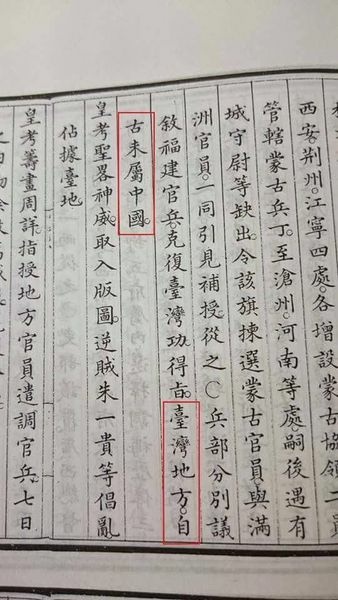 西安。荊州。江寧四處。各增設蒙古協領二員
管轄蒙古兵丁。至滄州。河南等處。嗣後遇有
城守尉等缺出。令該旗揀選蒙古官員。與滿
洲官員。一同引見補授。從之○兵部分別議
敘福建官兵。克復臺灣功。得旨。臺灣地方。自
古未屬中國。
皇考聖畧神威。取入版圖。逆賊朱一貴等倡亂
佔據臺地。
皇考籌畫周詳。指授地方官員。遣調官兵。七日